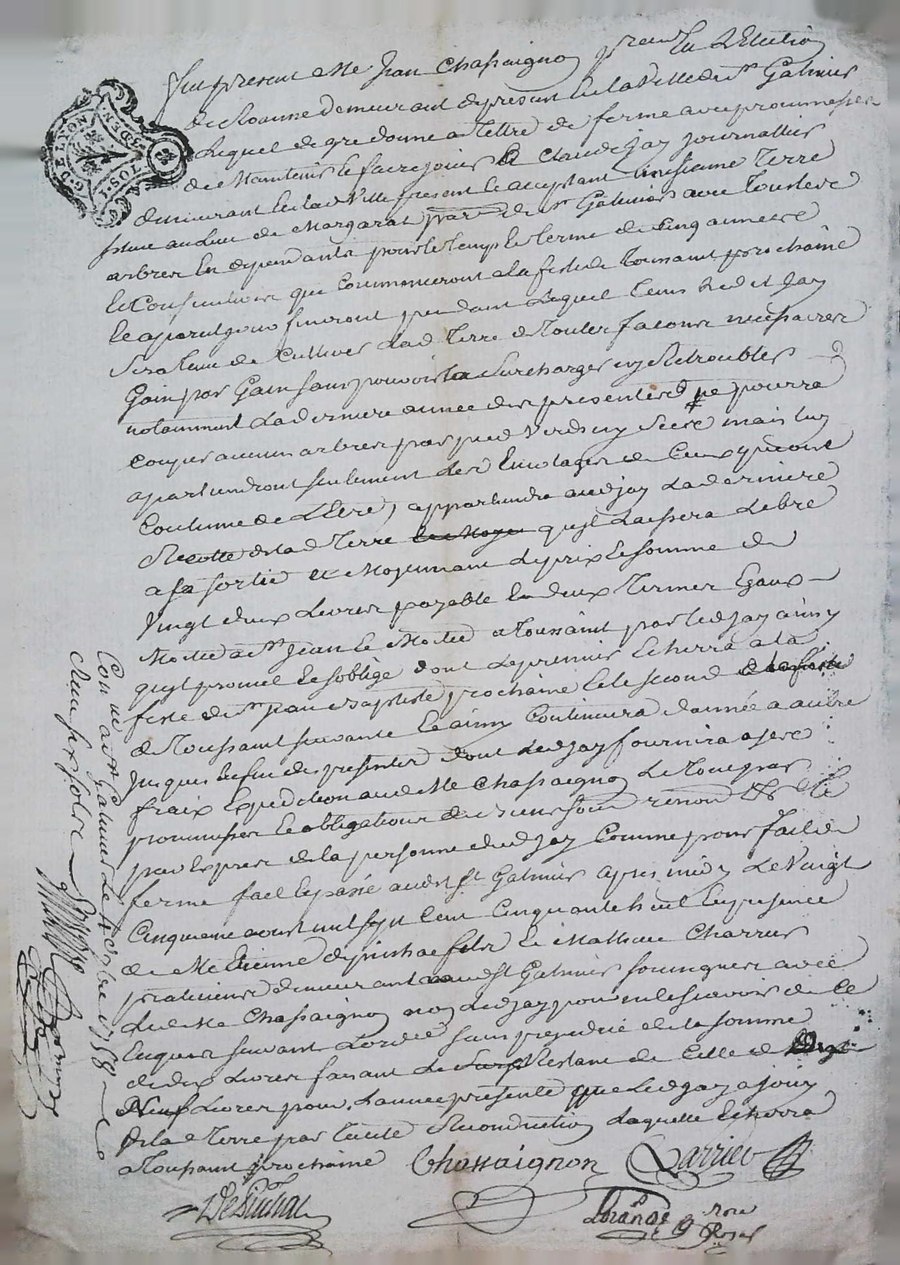 G. D. LYON
1. SOL
Fut présent Me Jean Chassaignon
de Roanne demeurant à présent en la Ville de St Galmier
Lequel de gre donne a tittre de ferme avec promesse
de Maintenir et faire jouir Claude Jay Journallier
demeurant en lad Ville présent et acceptant une sienne Terre
située au Lieu de Margarat parsse de St Galmier avec Tous les
arbres en dependants pour le temps et terme de cinq années
et Consecutives qui Commenceront a la feste de Toussaint prochaine
et a pareil jour finiront pendant Lequel tems led jay
Sera tenu de Cultiver lad Terre de toutes façons necessaires
Gain par Gain sans pouvoir la Surcharger ny Retroubler
notamment La derniere année des presentes ne pourra
couper aucun arbres par pied Verds ny Secs mais luy
apartiendront seulement les Emolages de Ceux qui ont
Coutume de L'Etre, appartiendra aud jay La derniere
Recolte de lad Terre qu'il Laissera Libre
a sa sortie et Moyennant Le prix et somme de
Vingt deux Livres payable en deux Termes Egaux
Moitié a St Jean et Moitié a Toussaint par led Jay ainsy
qu'il promet et s'oblige dont Le premier Echerra a la
feste de St Jean Baptiste prochaine et le second
de Toussaint suivante et ainsy Continuera d'année a autre
jusques en fin des presentes dont Led jay fournira a ses
fraix Expedition aud Me Chassaignon Le Tout par
promesses et obligations de
par Exprès de la personne dud jay Comme pour fait de
ferme fait et passé aud St Galmier apres midy Le Vingt
Cinquieme aoust mil sept Cent Cinquante huit En presence
de Me Etienne fils et Mathieu Charrier
praticiens demeurant aud St Galmier soussignés avec
Led Me Chassaignon non Led jay pour ne Sçavoir de Ce
Enquis suivant L'ordce sans prejudice de la somme
de dix Livres faisant Le Restant de Celle de
Neuf Livres pour L'année présente que Led jay a joui
de lad Terre par tacite Reconduction Laquelle Echerra
a Toussaint prochaine Chassaignon Carrier
Con llé a St Galmier Le 4 1758